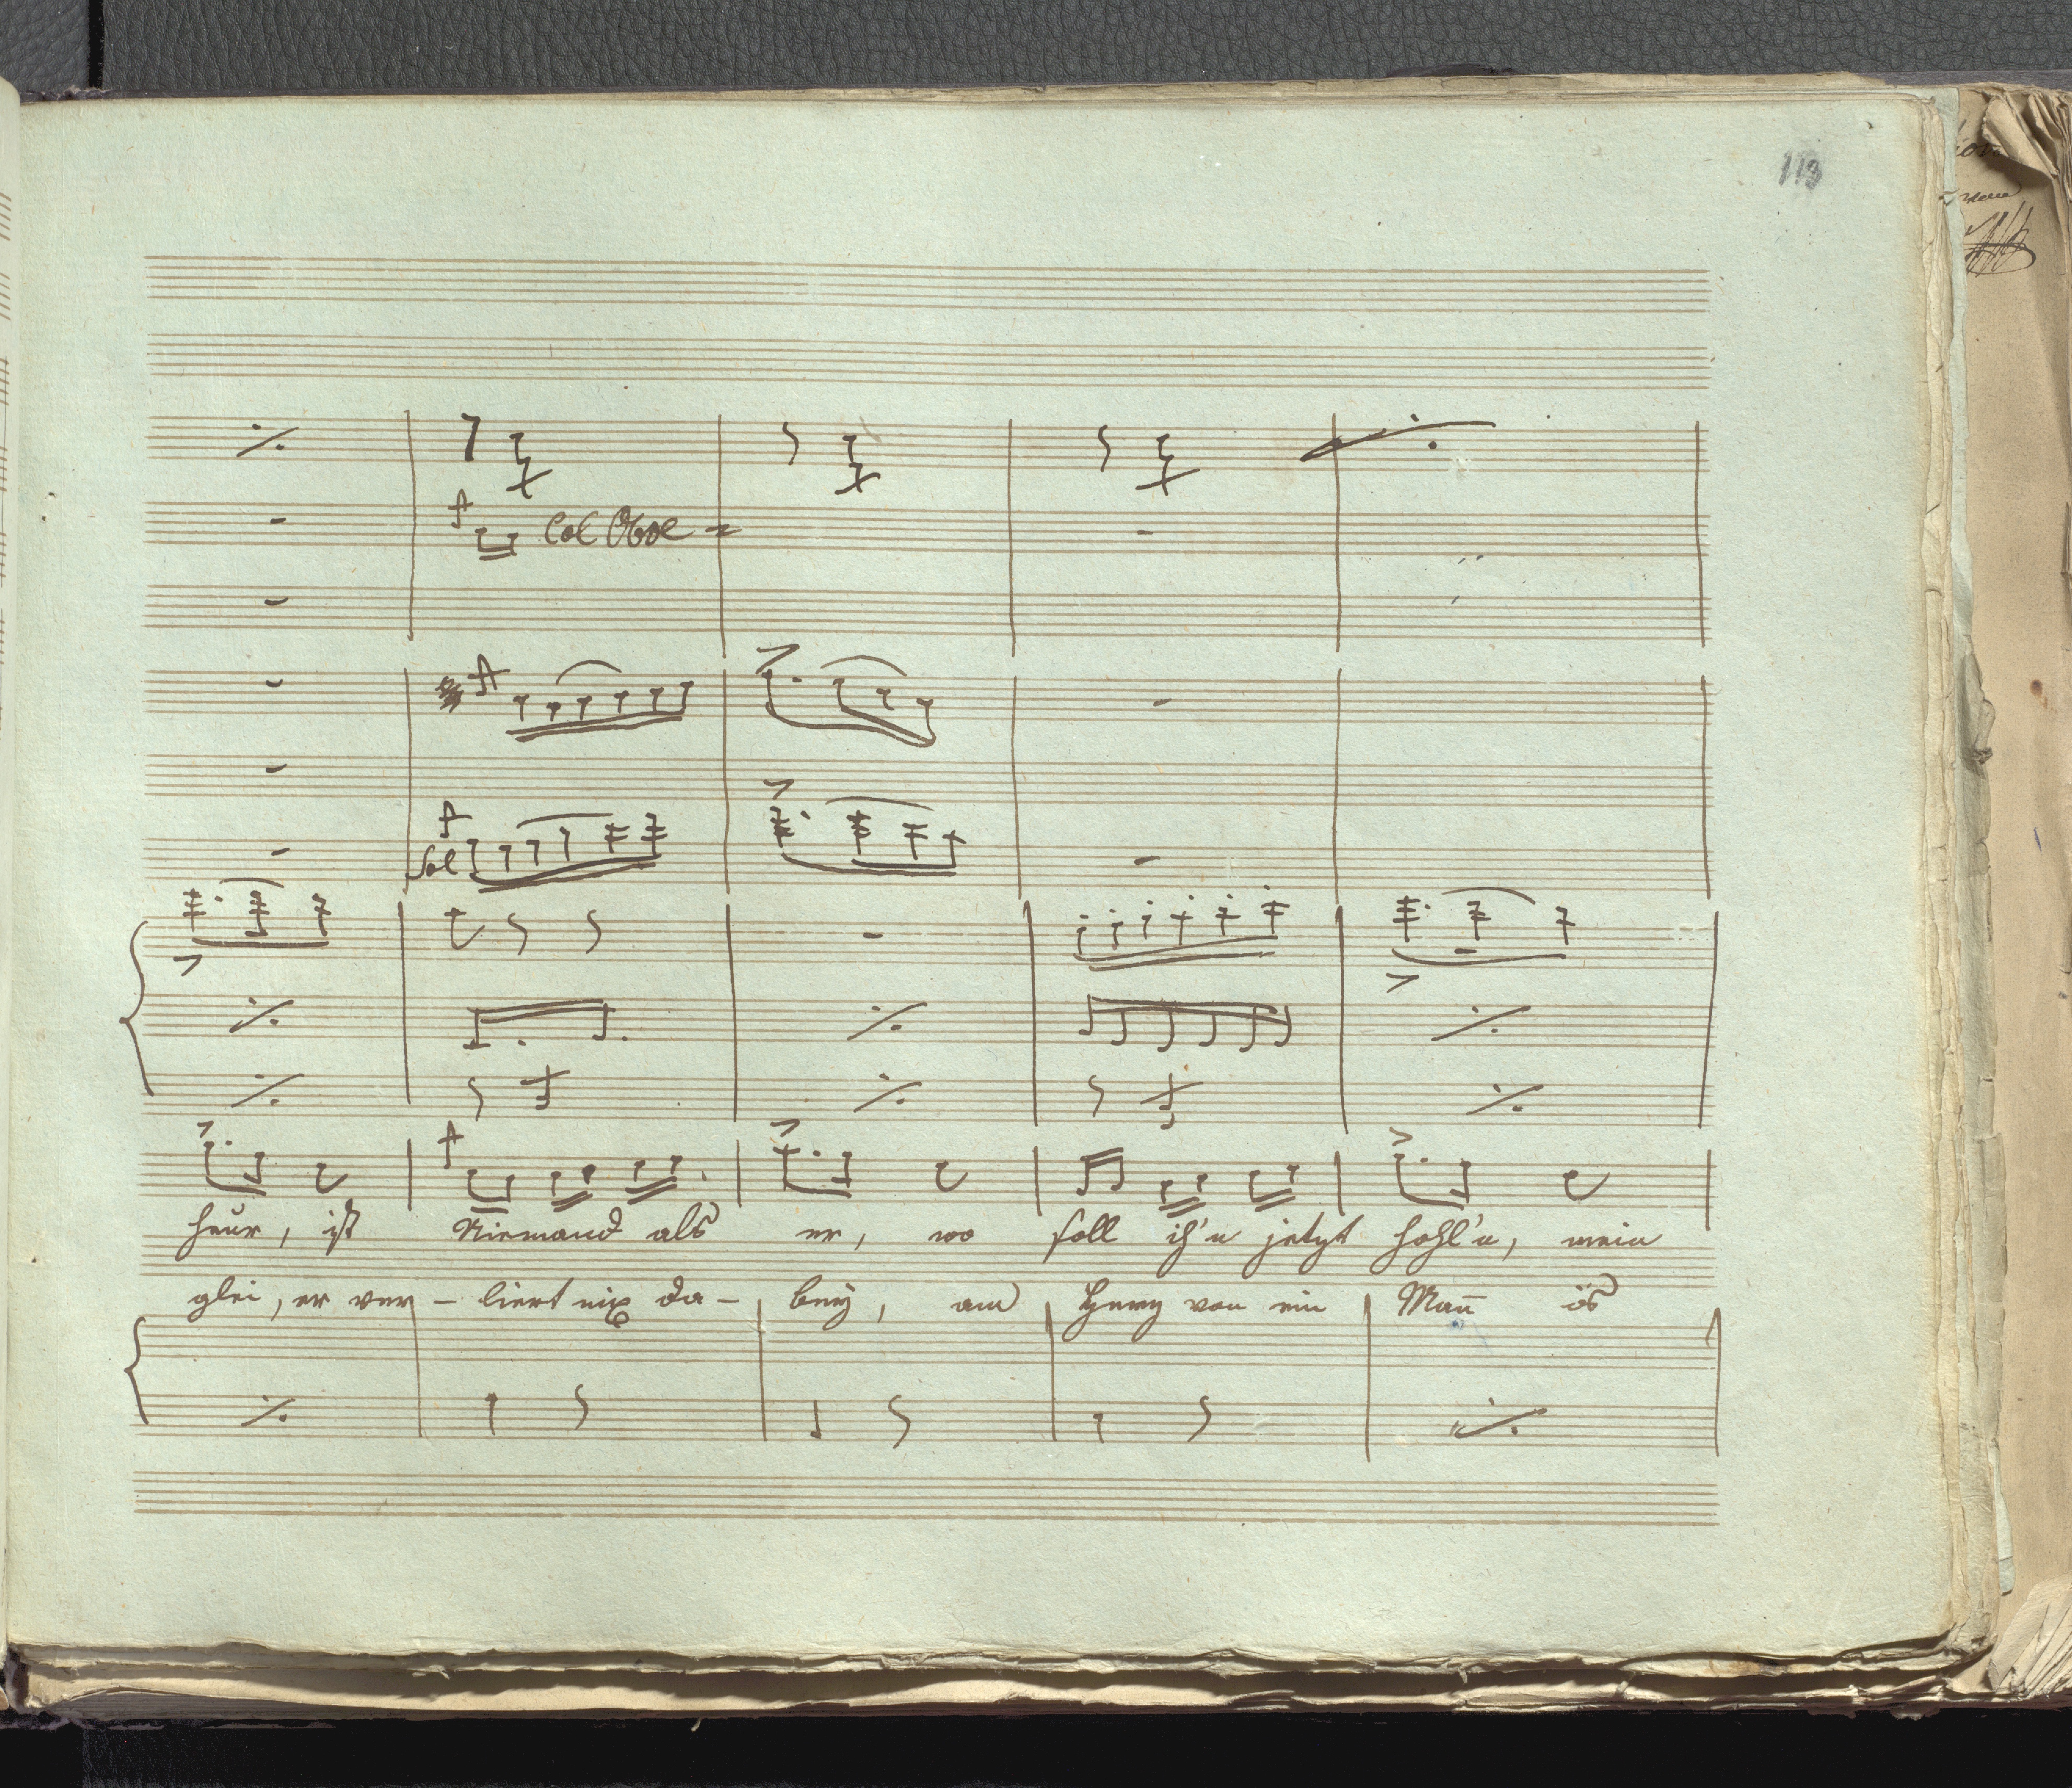 119
Col Oboe =
Sol
heur, ist Niemand als er, wo soll ich'n jetzt hohl'n, mein
glei, er ver – liert nix da – bey, am von ein Mañ